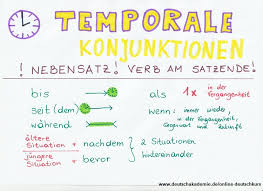 TEMPORALE
KONJUNKTIONEN
! NEBENSATZ! VERB AM SATZENDE!
bis
seit (dem)
während
als 1x in der Vergangenheit
wenn: immer wieder,
in der Vergangenheit,
Gegenwart und Zukunft
ältere Situation + nachdem
jüngere Situation + bevor
2 Situationen
hintereinander
www.deutschakademie.de/online-deutschkurs